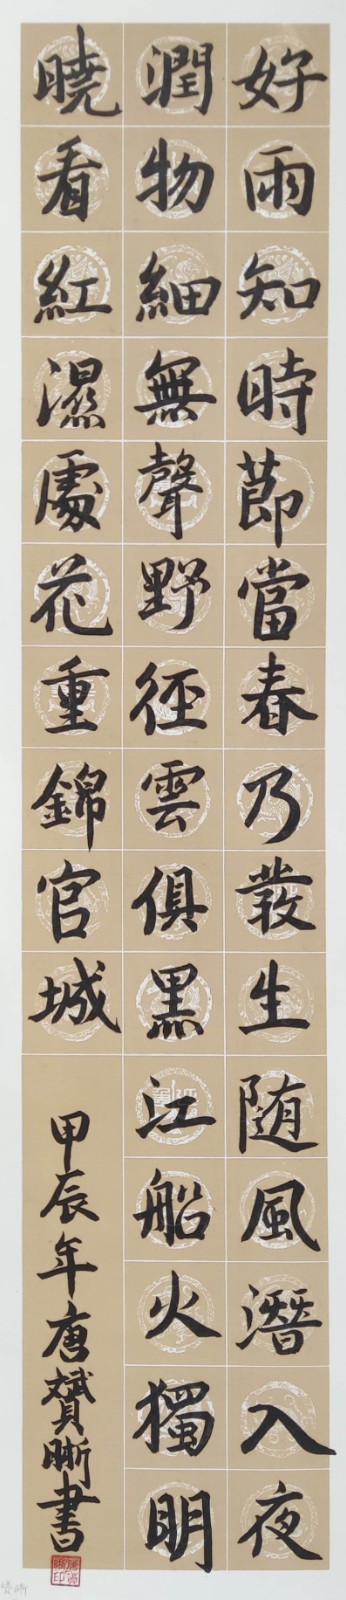 好雨知時節當春乃發生随風潛入夜
潤物細無聲野徑雲俱黑江船火獨明
曉看紅濕處花重錦官城
甲辰年唐贇晰書